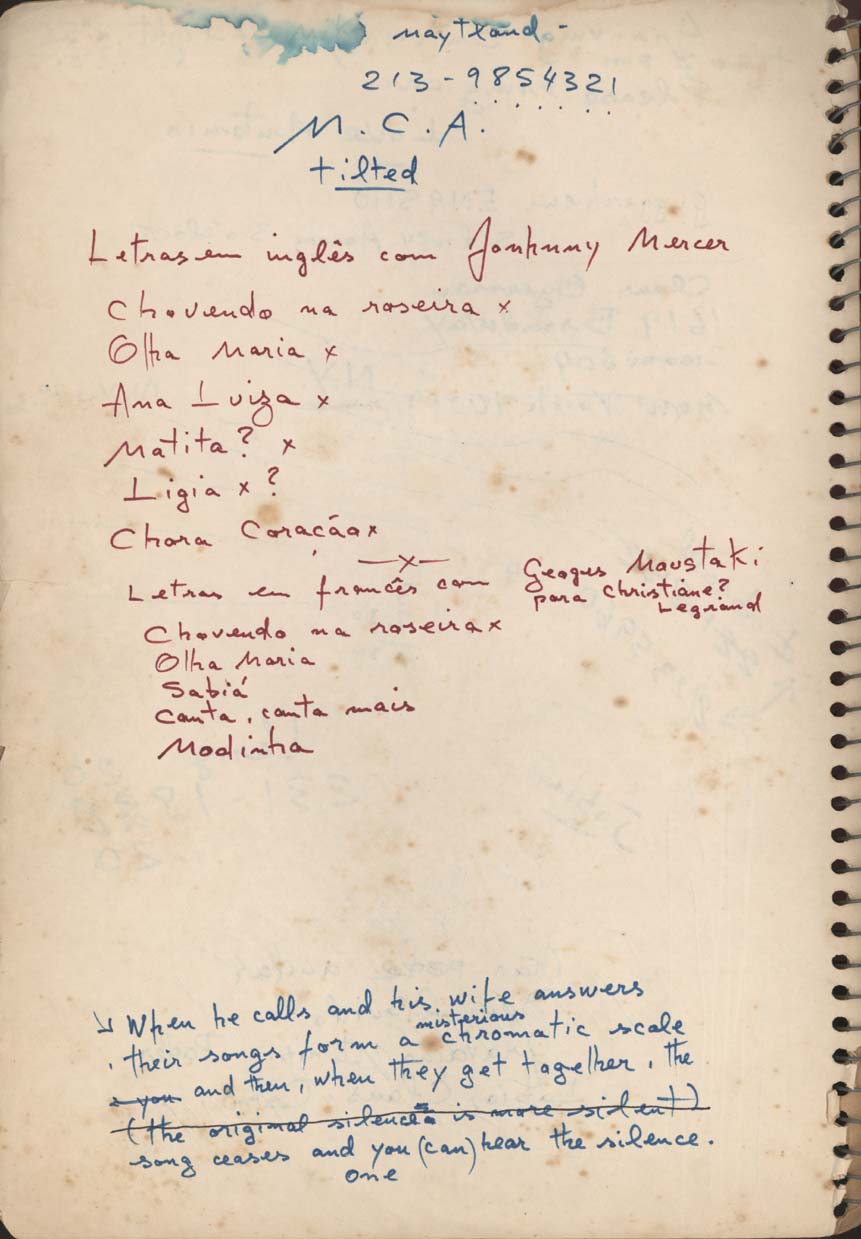 naytxand -
213-9854321
M.C.A.
tilted
Letras em inglês com Jonhnny Mercer
Chovendo na roseira x
Olha Maria x
Ana Luiza x
Matita? x
Ligia x ?
Chora Coração x
—x—
Letras em francês com Geoges Moustaki
para Christiane?
Legrand
Chovendo na roseira x
Olha Maria
Sabiá
Canta, canta mais
Modinha
When he calls and his wife answers
misterious
their songs form a chromatic scale
you and then, when they get together, the
(the original silence is more silent)
song ceases and you (can) hear the silence.
one